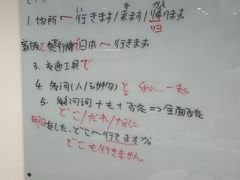 1. 场所へ行きます/来ます/帰ります
家族と飛行機で日本へ行きます。
3. 交通工具で
4. 名词(人/动物)と 和...一起
5. 疑问词+も+否定⇒全面否定
どこ/だれ/なに
明日、どこへ行きますか。
どこも行きません。